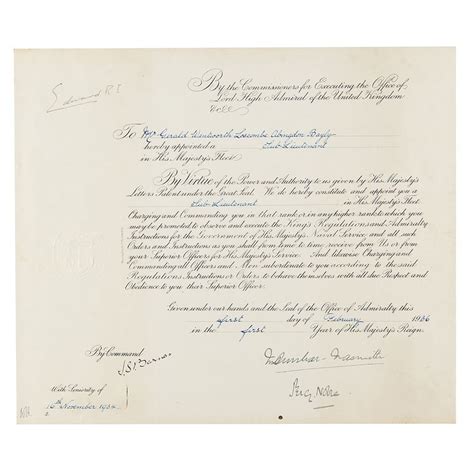 Edward R I
By the Commissioners for Executing the Office of
Lord High Admiral of the United Kingdom
&c &c &c
To Mr Gerald Wentworth Loscombe Abingdon Bayly
hereby appointed a Sub-Lieutenant
in His Majesty's Fleet.
By Virtue of the Power and Authority to us given by His Majesty's
Letters Patent under the Great Seal, We do hereby constitute and appoint you a
Sub-Lieutenant in His Majesty's Fleet
Charging and Commanding you in that rank or in any higher rank to which you
may be promoted to observe and execute the King's Regulations and Admiralty
Instructions for the Government of His Majesty's Naval Service and all such
Orders and Instructions as you shall from time to time receive from Us or from
your Superior Officers for His Majesty's Service. And likewise Charging and
Commanding all Officers and Men subordinate to you according to the said
Regulations Instructions or Orders to behave themselves with all due Respect and
Obedience to you their Superior Officer.
Given under our hands and the Seal of the Office of Admiralty this
first day of February 1936
in the first Year of His Majesty's Reign.
By Command
With Seniority of
16th November 1934.